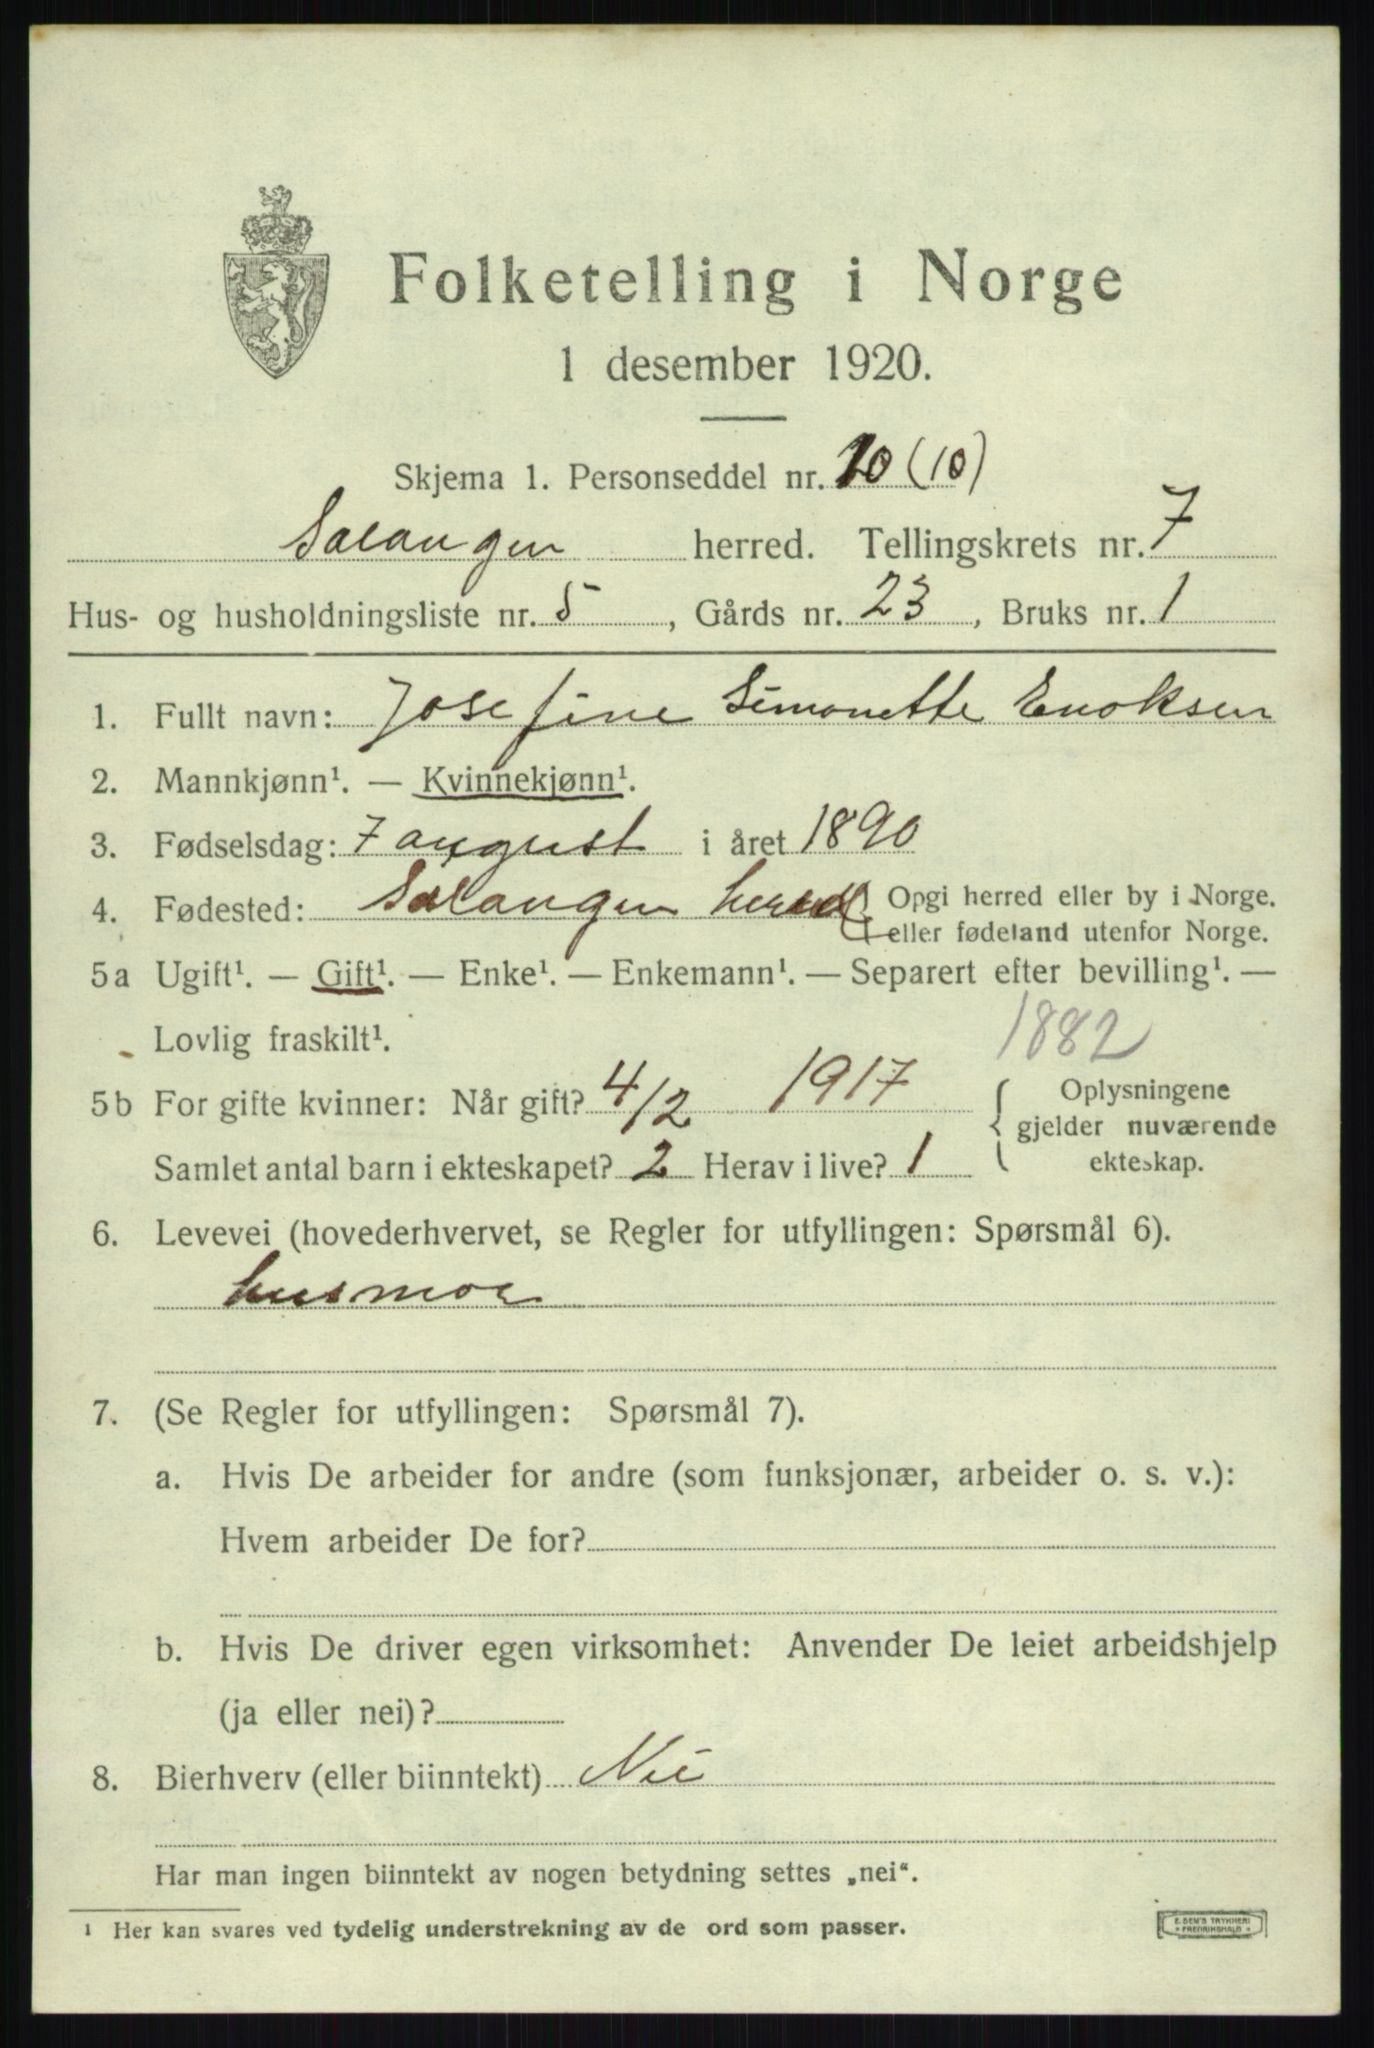 Folketelling i Norge
1 desember 1920.
Skjema 1. Personseddel nr. 10 (10)
Salangen herred. Tellingskrets nr. 7
Hus- og husholdningsliste nr. 5, Gårds nr. 23, Bruks nr. 1
1. Fullt navn: Josefine Simonette Enoksen
2. Mannkjønn¹. — Kvinnekjønn¹.
3. Fødselsdag: 7 august i året 1890
4. Fødested: Salangen herred { Opgi herred eller by i Norge.
eller fødeland utenfor Norge.
5a Ugift¹. — Gift¹. — Enke¹. — Enkemann¹. — Separert efter bevilling¹. —
Lovlig fraskilt¹.
1882
5b For gifte kvinner: Når gift? 4/2 1917
Samlet antal barn i ekteskapet? 2 Herav i live? 1
{ Oplysningene
gjelder nuværende
ekteskap.
6. Levevei (hovederhvervet, se Regler for utfyllingen: Spørsmål 6).
husmor
7. (Se Regler for utfyllingen: Spørsmål 7).
a. Hvis De arbeider for andre (som funksjonær, arbeider o. s. v.):
Hvem arbeider De for?
b. Hvis De driver egen virksomhet: Anvender De leiet arbeidshjelp
(ja eller nei)?
8. Bierhverv (eller biinntekt) Nei
Har man ingen biinntekt av nogen betydning settes „nei“.
¹ Her kan svares ved tydelig understrekning av de ord som passer.
E. SEM'S TRYKKERI
FREDRIKSHALD